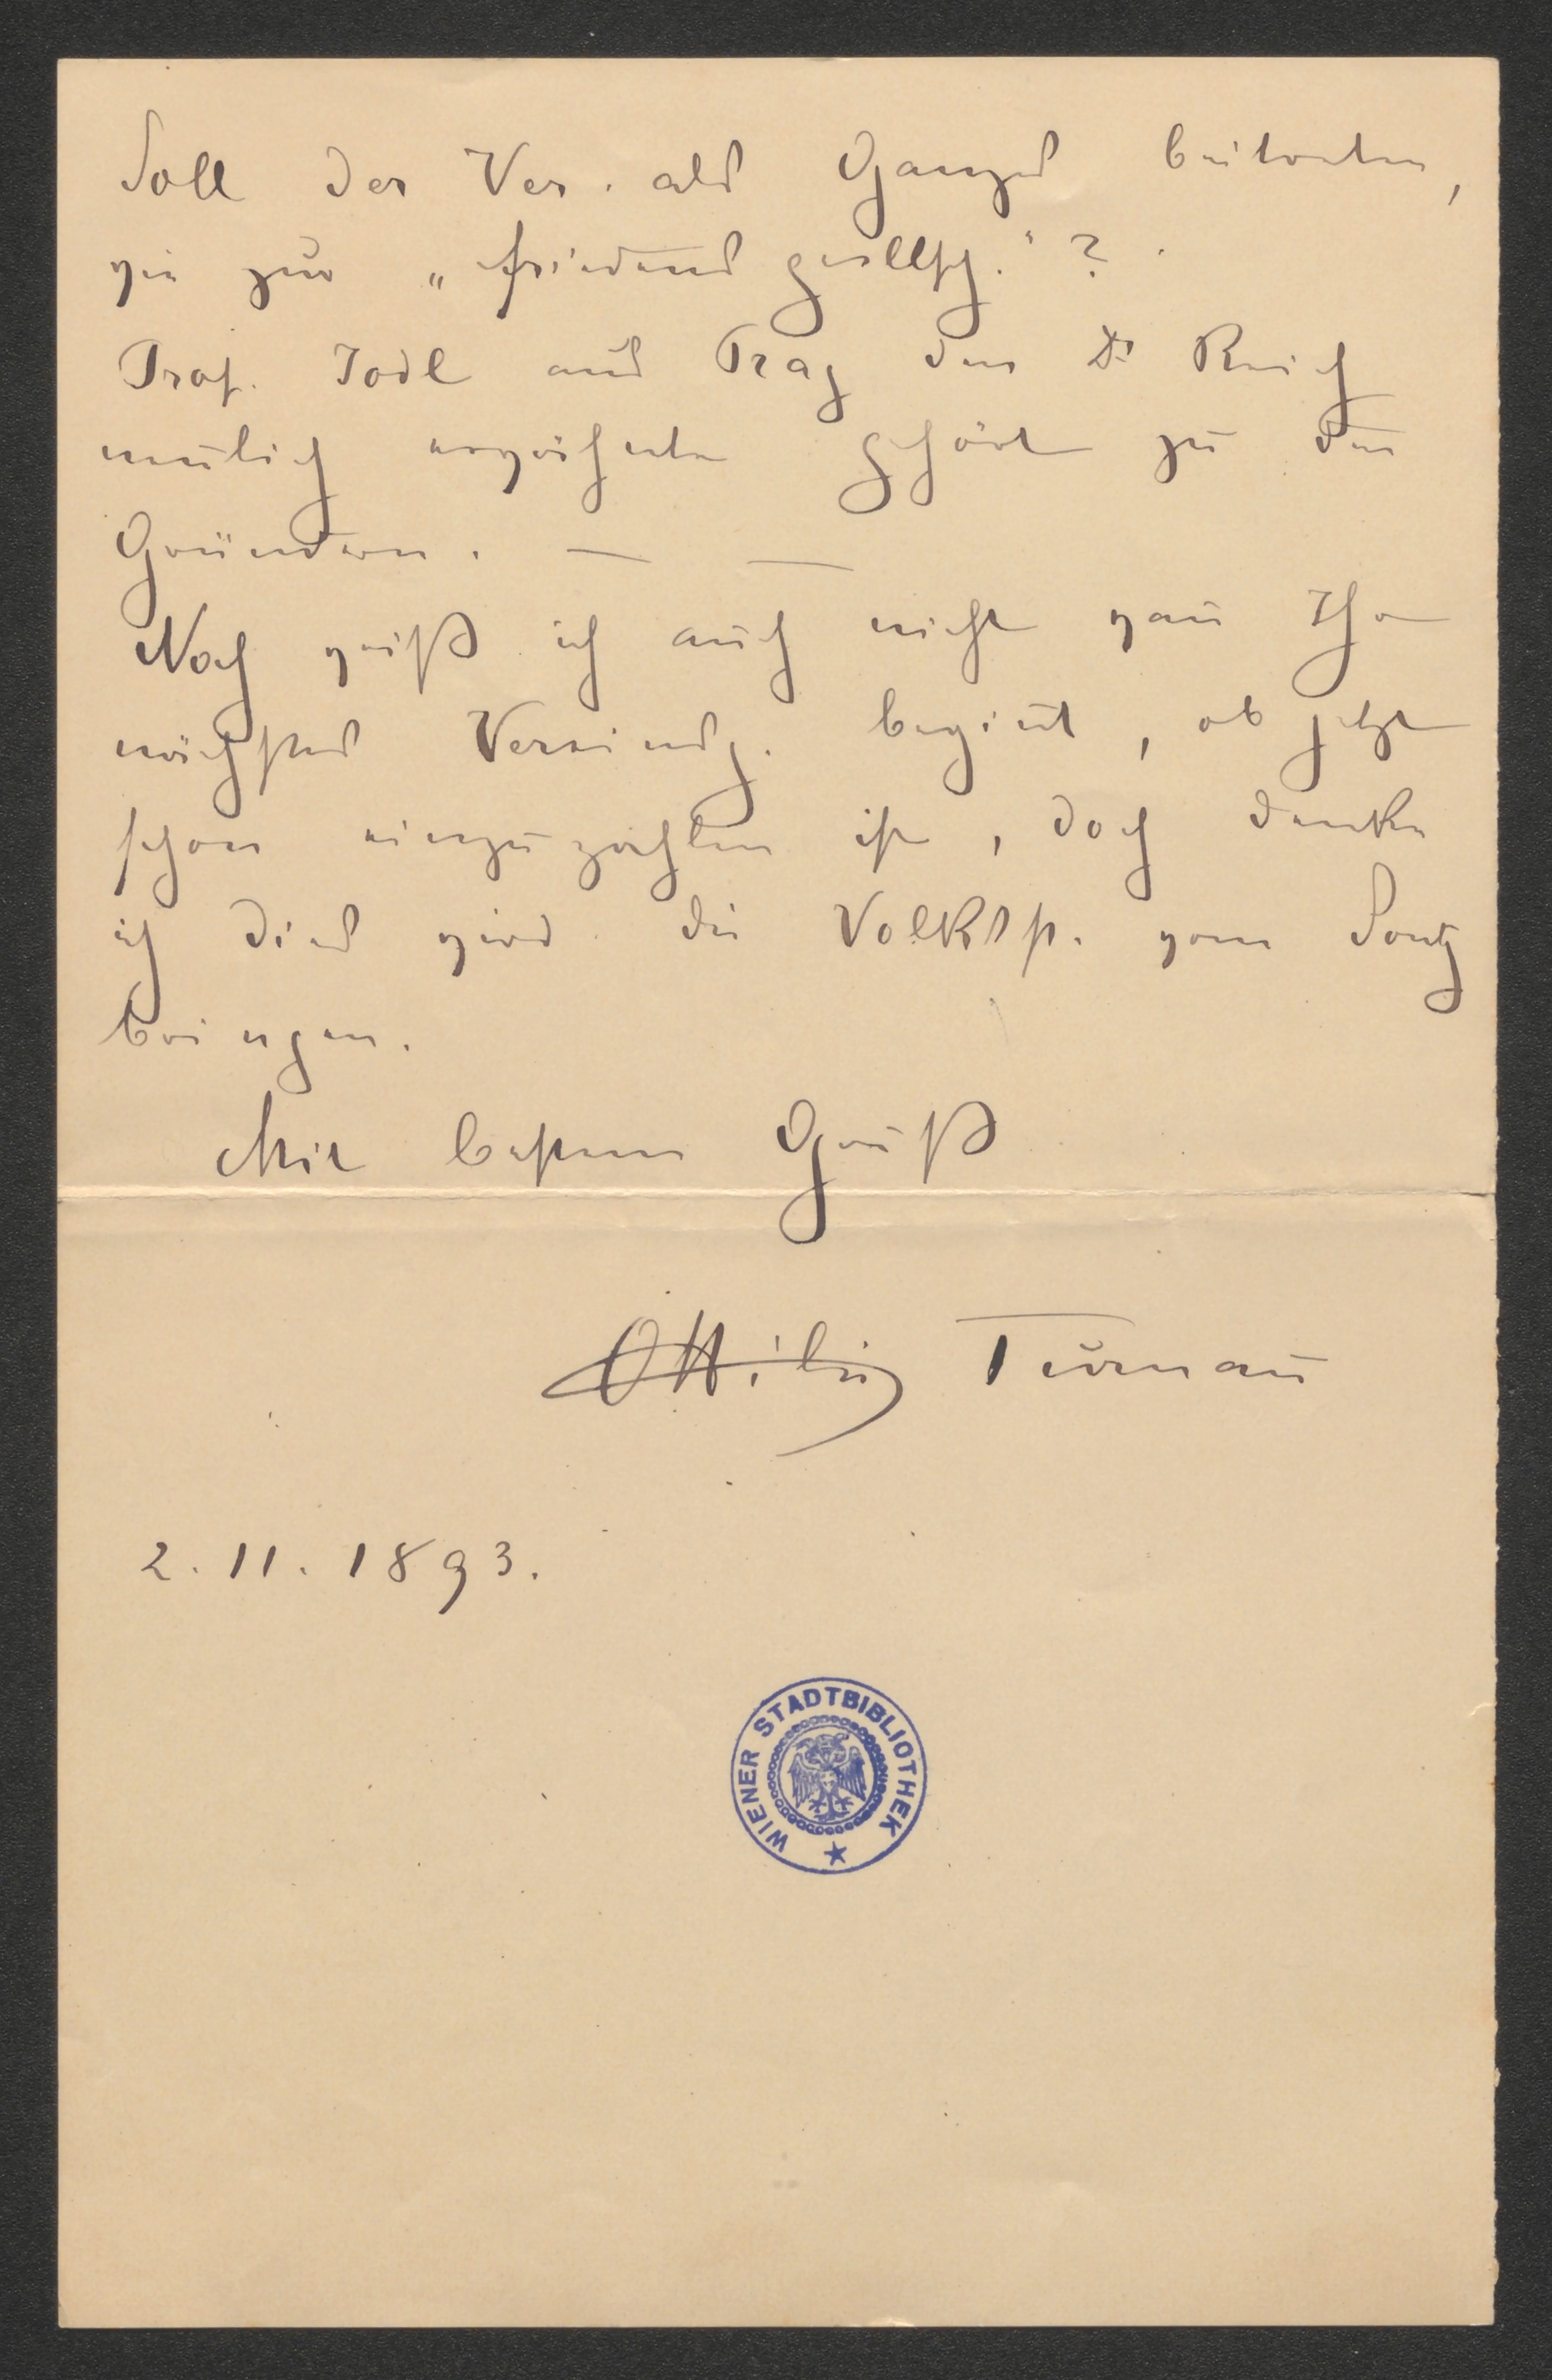 Soll der Ver. als Ganzes beitreten,
wie zur „Friedensgesellsch."?
Prof. Jodl aus Prag den Dr Reich
neulich erwähnte gehört zu den
Gründern. — —
Noch weiß ich auch nicht wann Ihr
nächstes Vereinsj. begint, ob jetzt
schon einzuzahlen ist, doch denke
ich dies wird die Volksst. vom Sontg
bringen.
Mit bestem Gruß
Ottilie Turnau
2.11.1893.
WIENER STADTBIBLIOTHEK